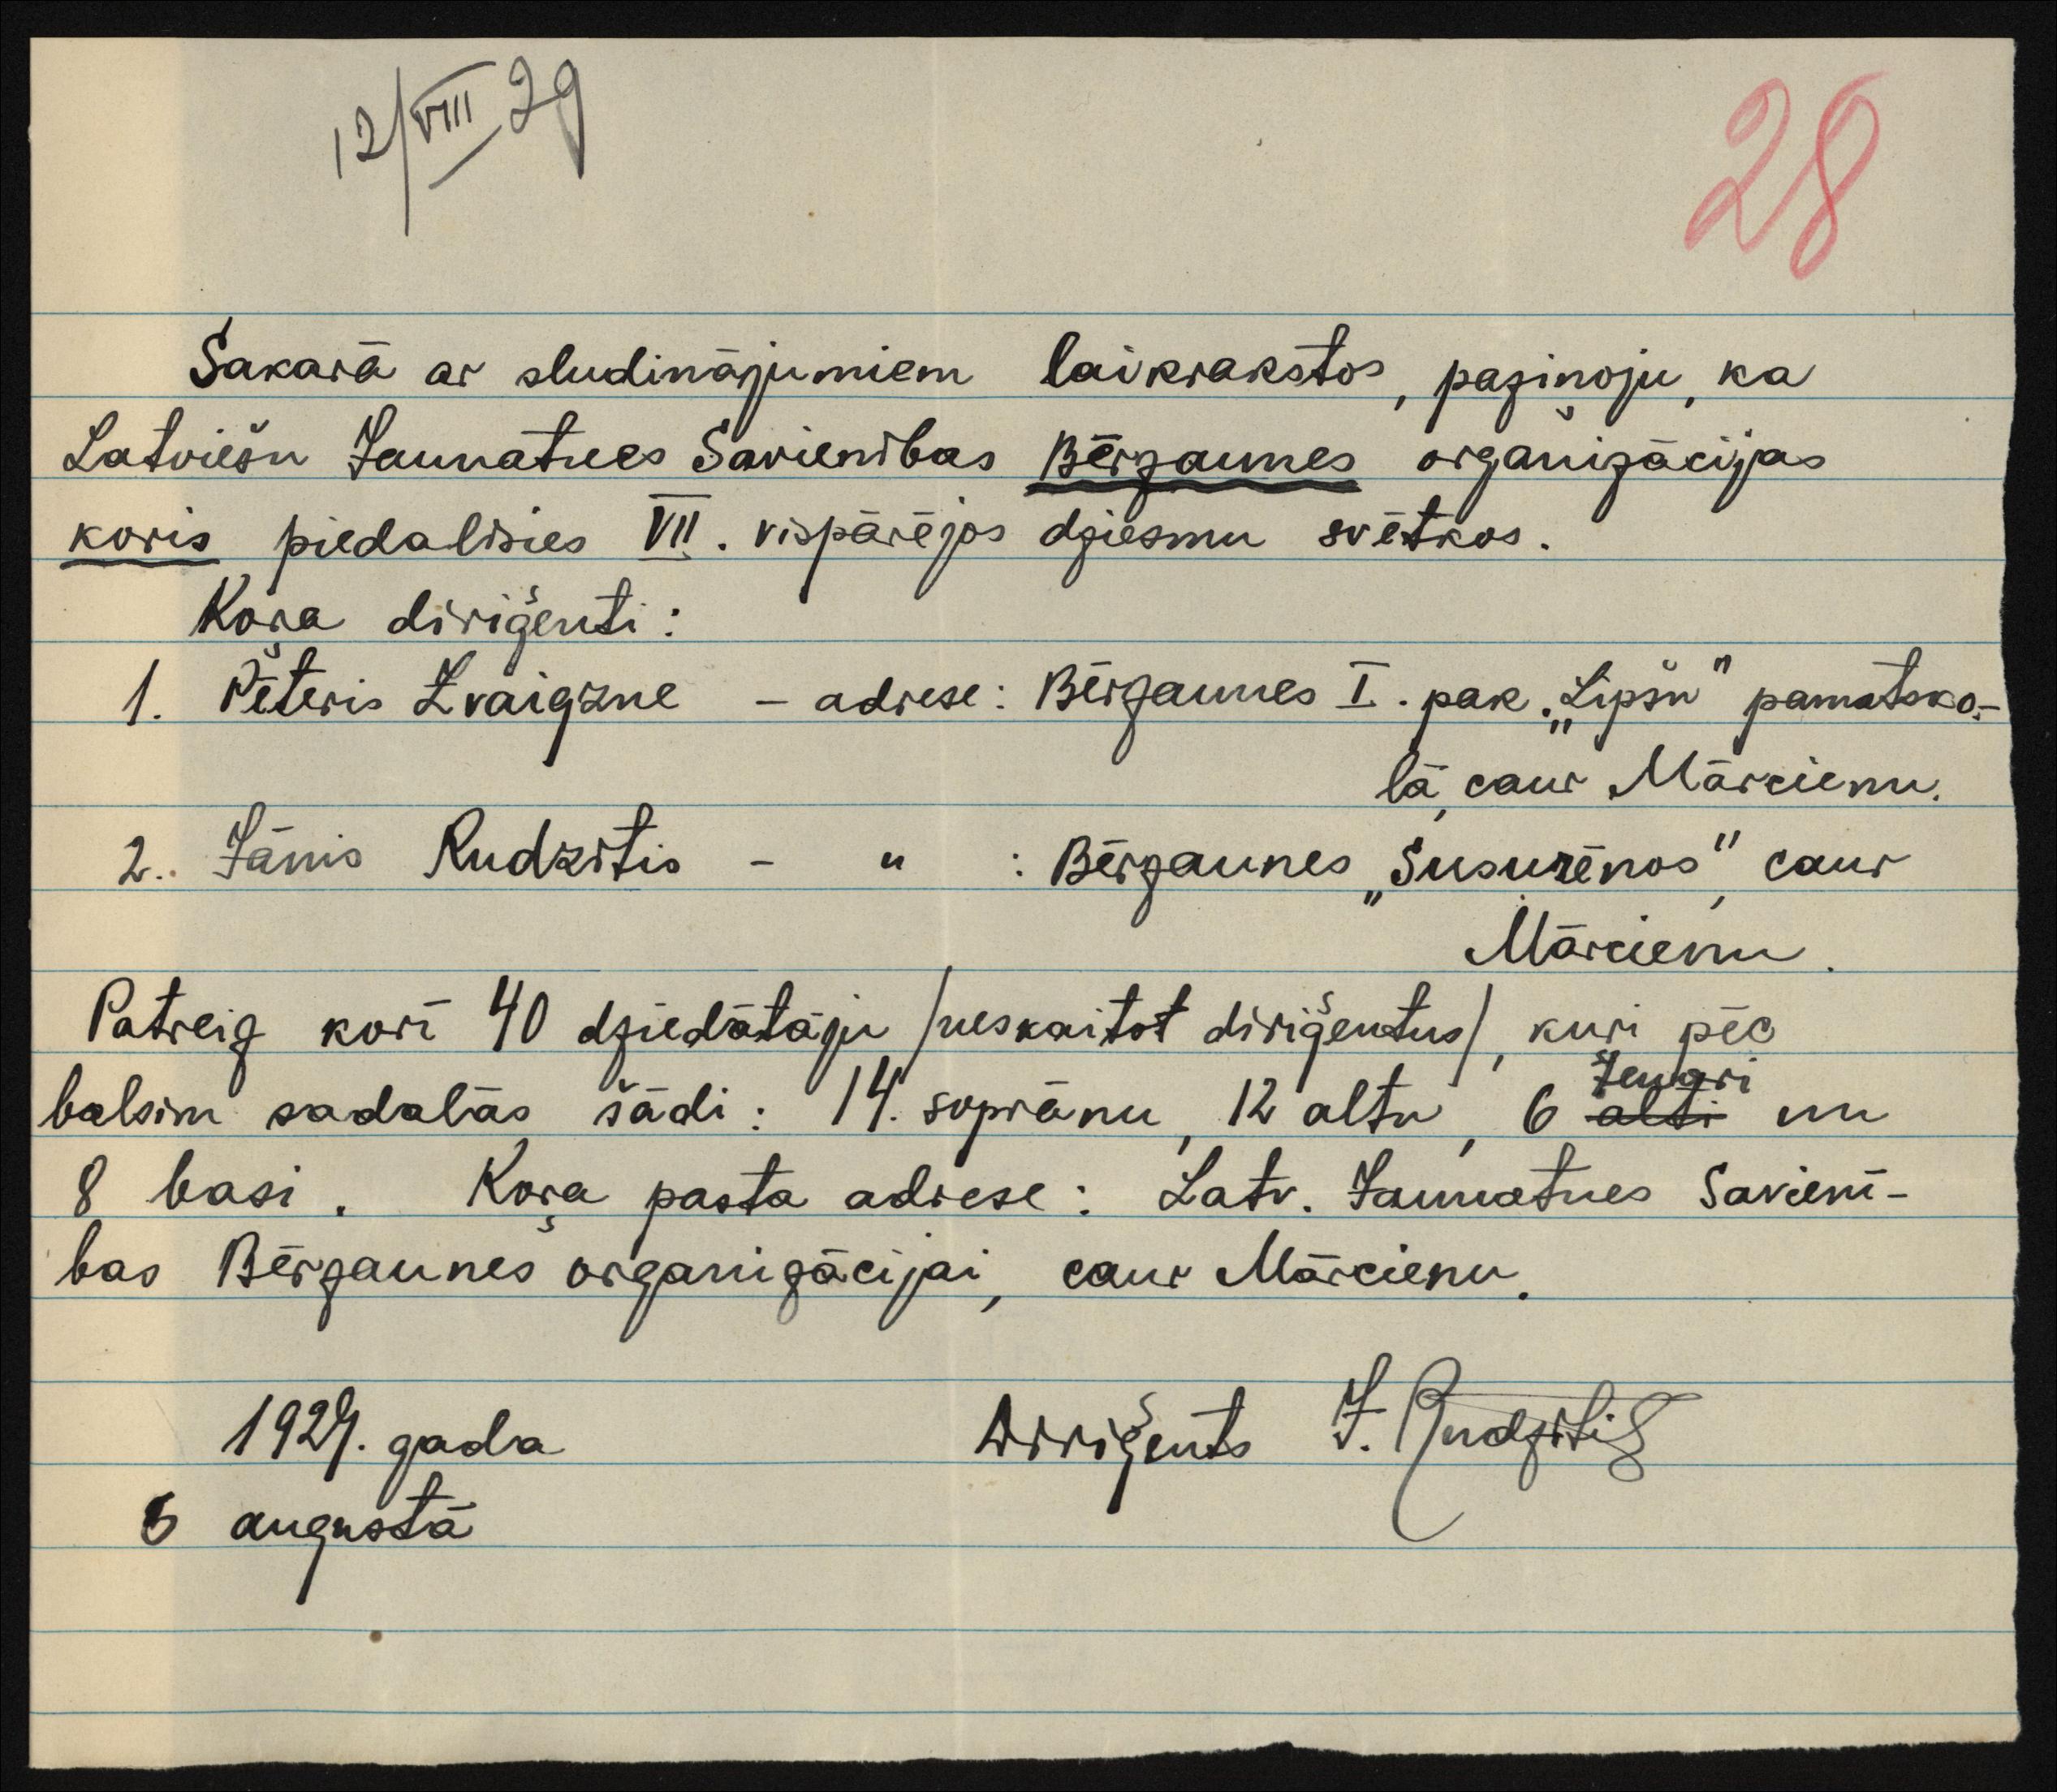 12/VIII 29
28
Sakarā ar sludinājumiem laikrakstos, paziņoju, ka
Latviešu Jaunatnes Savienības Bērzaunes organizācijas
koris piedalīsies VII. vispārējos dziesmu svētkos.
Kora diriģenti:
1. Pēteris Zvaigzne – adrese: Bērzaunes I. pak. „Lipšu" pamatsko-
lā, caur Mārcienu.
2. Jānis Rudzītis – " : Bērzaunes „Susurēnos", caur
Mārcienu.
Patreiz korī 40 dziedātāju /neskaitot diriģentus/, kuri pēc
balsīm sadalās šādi: 14. soprānu, 12 altu, 6 alti tenori un
8 basi. Kora pasta adrese: Latv. Jaunatnes Savienī-
bas Bērzaunes organizācijai, caur Mārcienu.
1929. gada Diriģents J. Rudzītis
6 augustā